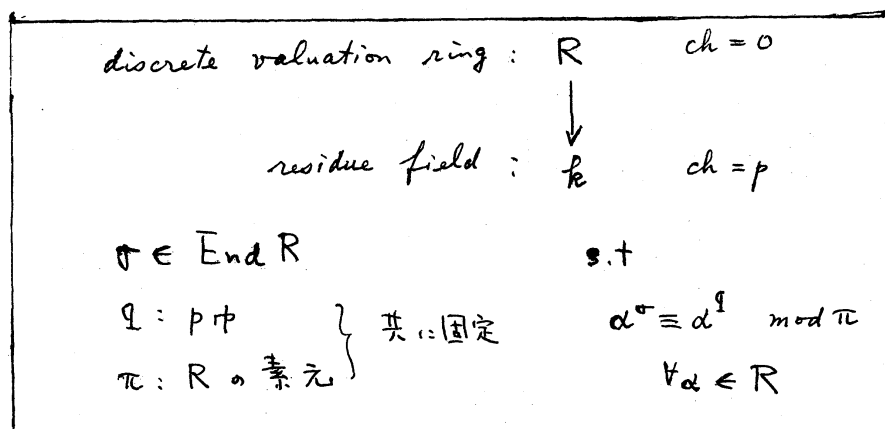 discrete valuation ring : R ch = 0
↓
residue field : k ch = p
σ ∈ End R s.t
q : p巾 } 共に固定 α^σ ≡ α^q mod π
π : R の素元 ∀α ∈ R